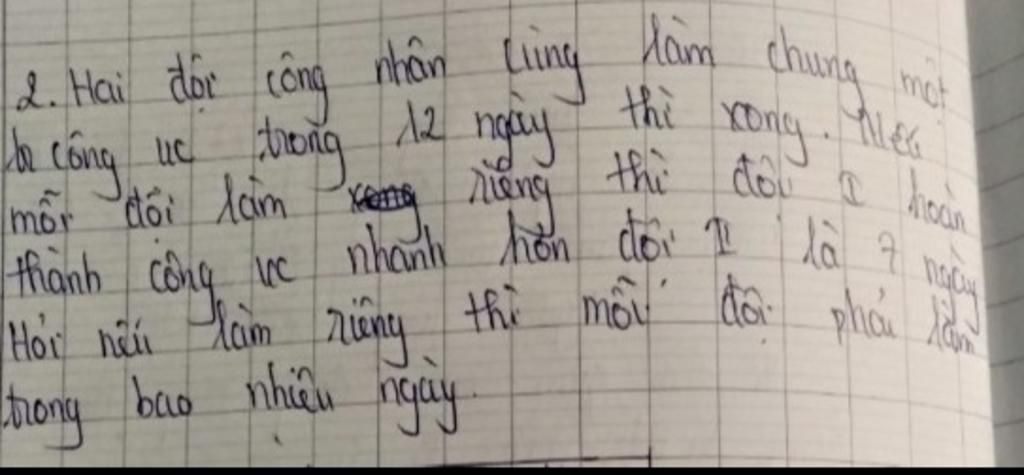 2. Hai đội công nhân cùng làm chung một
công vc trong 12 ngày thì xong. Nếu
mỗi đội làm riêng thì đội I hoàn
thành công vc nhanh hơn đội II là 7 ngày
Hỏi nếu làm riêng thì mỗi đội phải làm
trong bao nhiêu ngày.